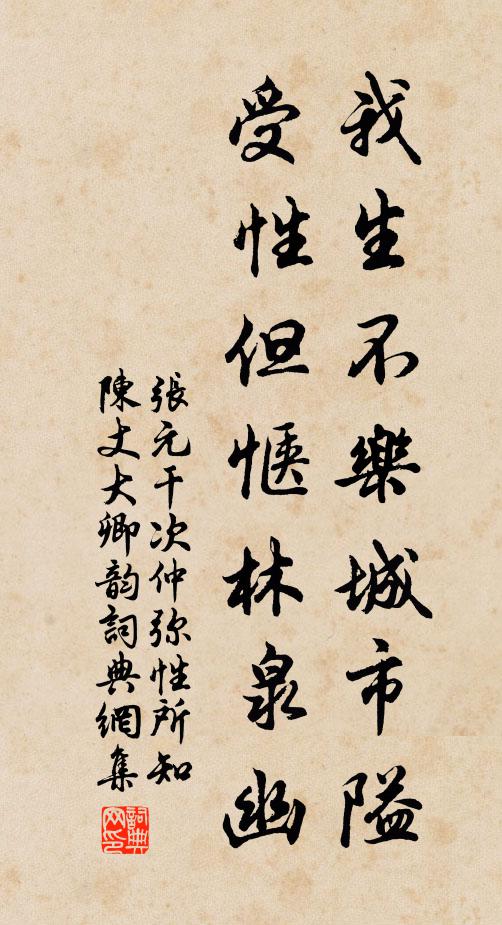 我生不樂城市隘
受性但愜林泉幽
張元干次仲弥性所知
陳丈大卿韵詞典網集
詞典网印